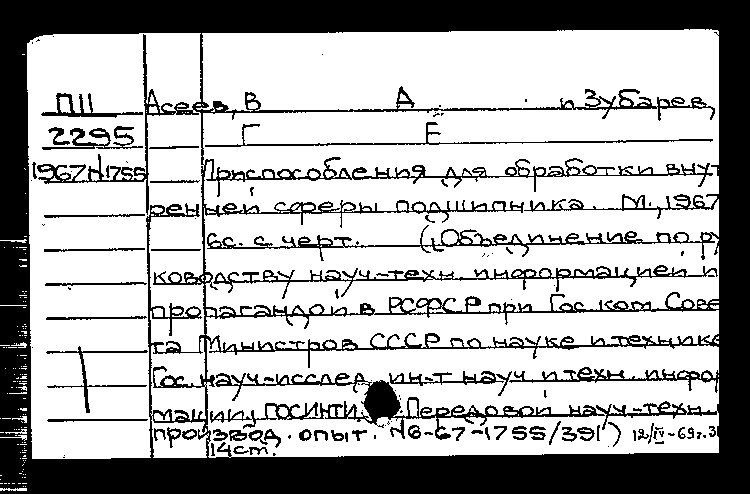 П11 Асеев, В А и Зубарев,
2295 Г Е
1967 N1755 Приспособления для обработки внут
ренней сферы подшипника. М., 1967
6с. с черт. (Объединение по ру
ководству науч-техн. информацией и
пропагандой в РСФСР при Гос. ком. Сове
та Министров СССР по науке и технике
Гос. науч-исслед. ин-т науч. и техн. инфор
мации. ГОСИНТИ. Передовой науч-техн.
производ. опыт. N6-67-1755/391) 12/IV-69г.
14cm.